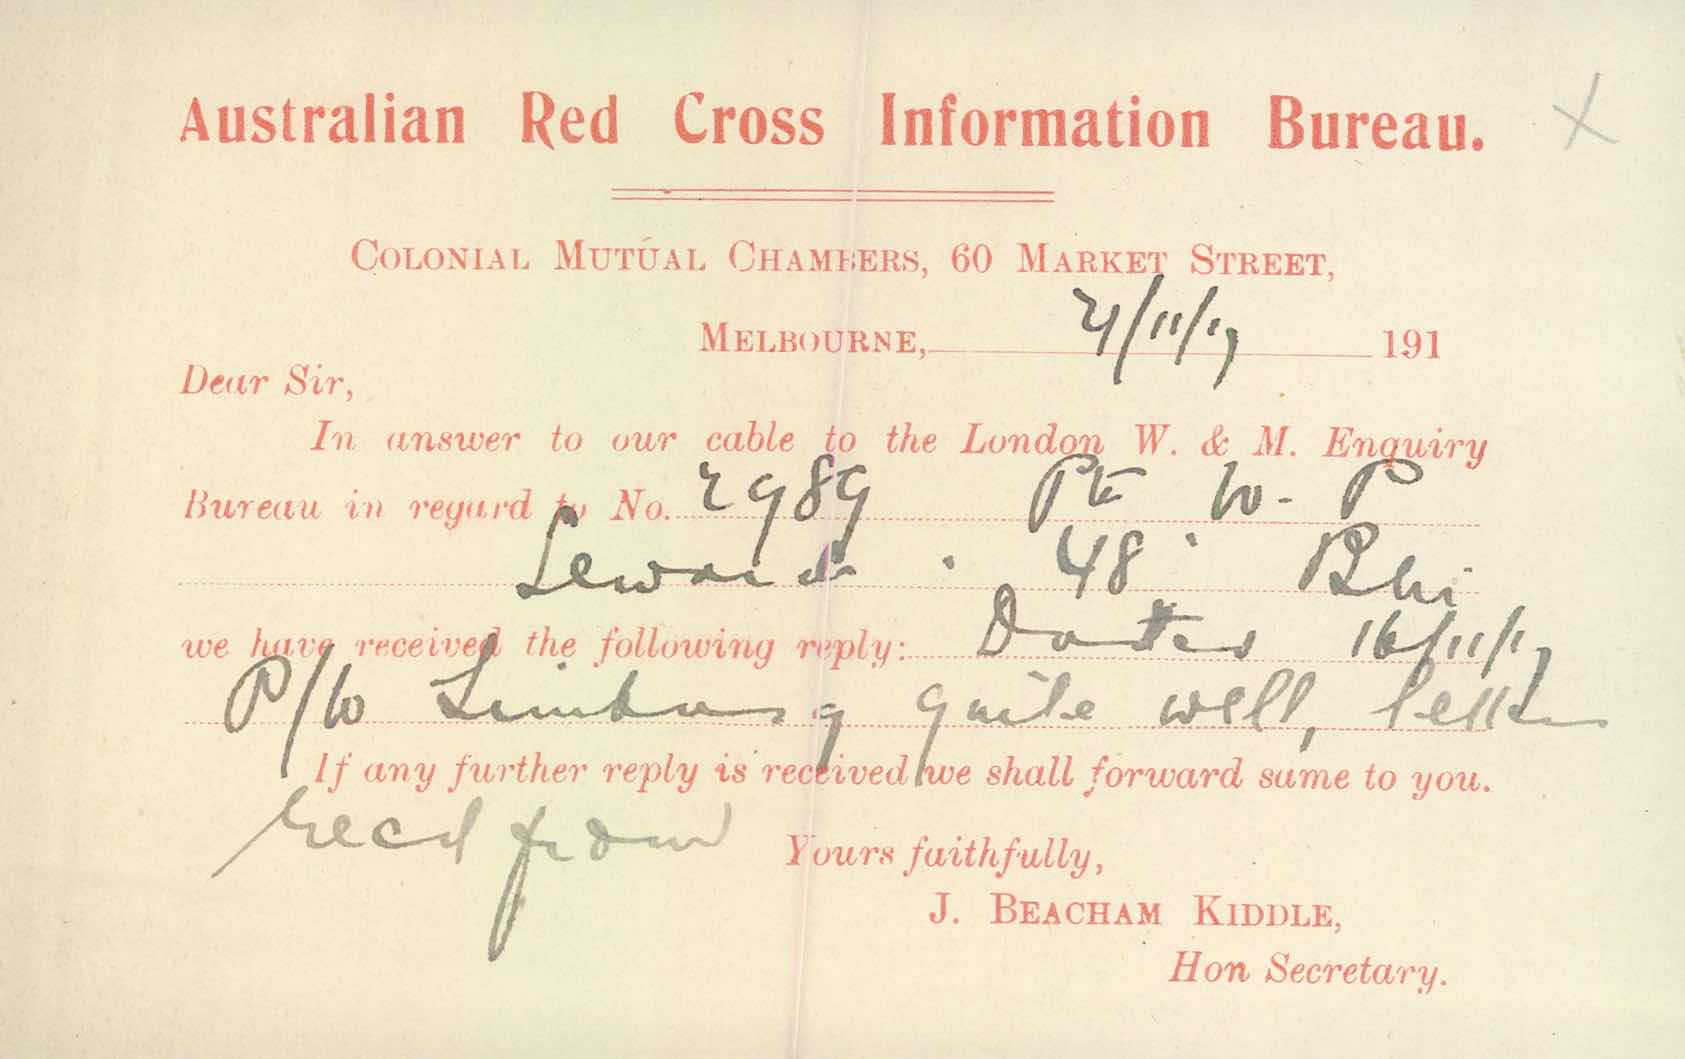 Australian Red Cross Information Bureau. X
COLONIAL MUTUAL CHAMBERS, 60 MARKET STREET,
MELBOURNE, 21/11/17 191
Dear Sir,
In answer to our cable to the London W. & M. Enquiry
Bureau in regard to No. 2989 Pte W. P
48 Bn
we have received the following reply: Dated 16/11/17
P/W Limburg quite well, letter
If any further reply is received we shall forward same to you.
recd from
Yours faithfully,
J. BEACHAM KIDDLE,
Hon Secretary.